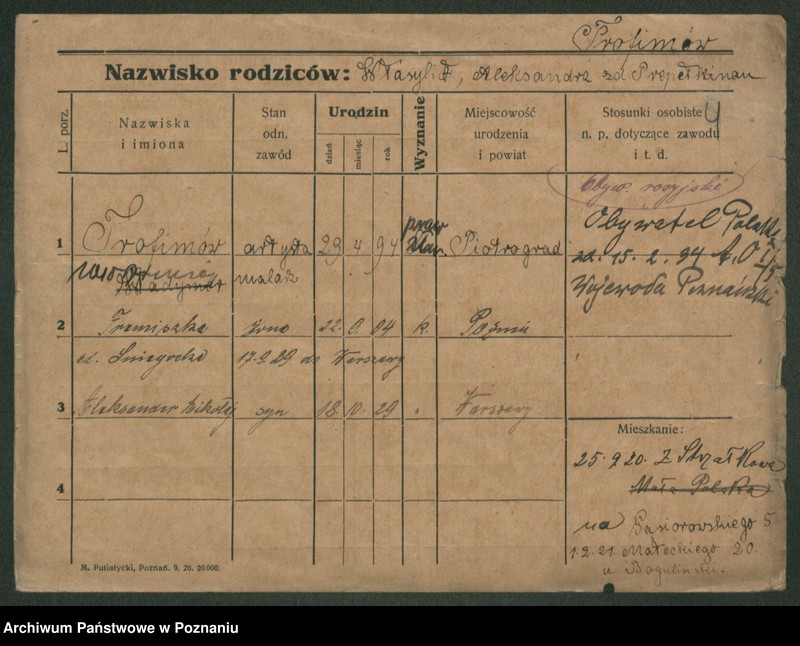 Trofimów
Nazwisko rodziców: Wasylit, Aleksandra zd Prepełkinan
4
L. porz.
Nazwiska i imiona
Stan odn. zawód
Urodzin
dzień
miesiąc
rok
Wyznanie
Miejscowość urodzenia i powiat
Stosunki osobiste n. p. dotyczące zawodu i t. d.
Obyw. rosyjski
1 Trofimów artysta 23 4 94 praw Piotrograd
malarz
Obywatel Polski
zd. 15. 2. 34
Wojewoda Poznański
2 Franciszka żona 22. 9. 04 k. Poznań
zd. Śniegocka 17.9.29 do Warszawy
3 Aleksander Mikołaj syn 18. 10. 29 " Warszawy
4
Mieszkanie:
25. 9 20. z Strzałkowa
Mała Polska
na Gąsiorowskiego 5
1. 2. 21. Małeckiego 20.
u
M. Putiatycki, Poznań. 9. 20. 20000.
Archiwum Państwowe w Poznaniu